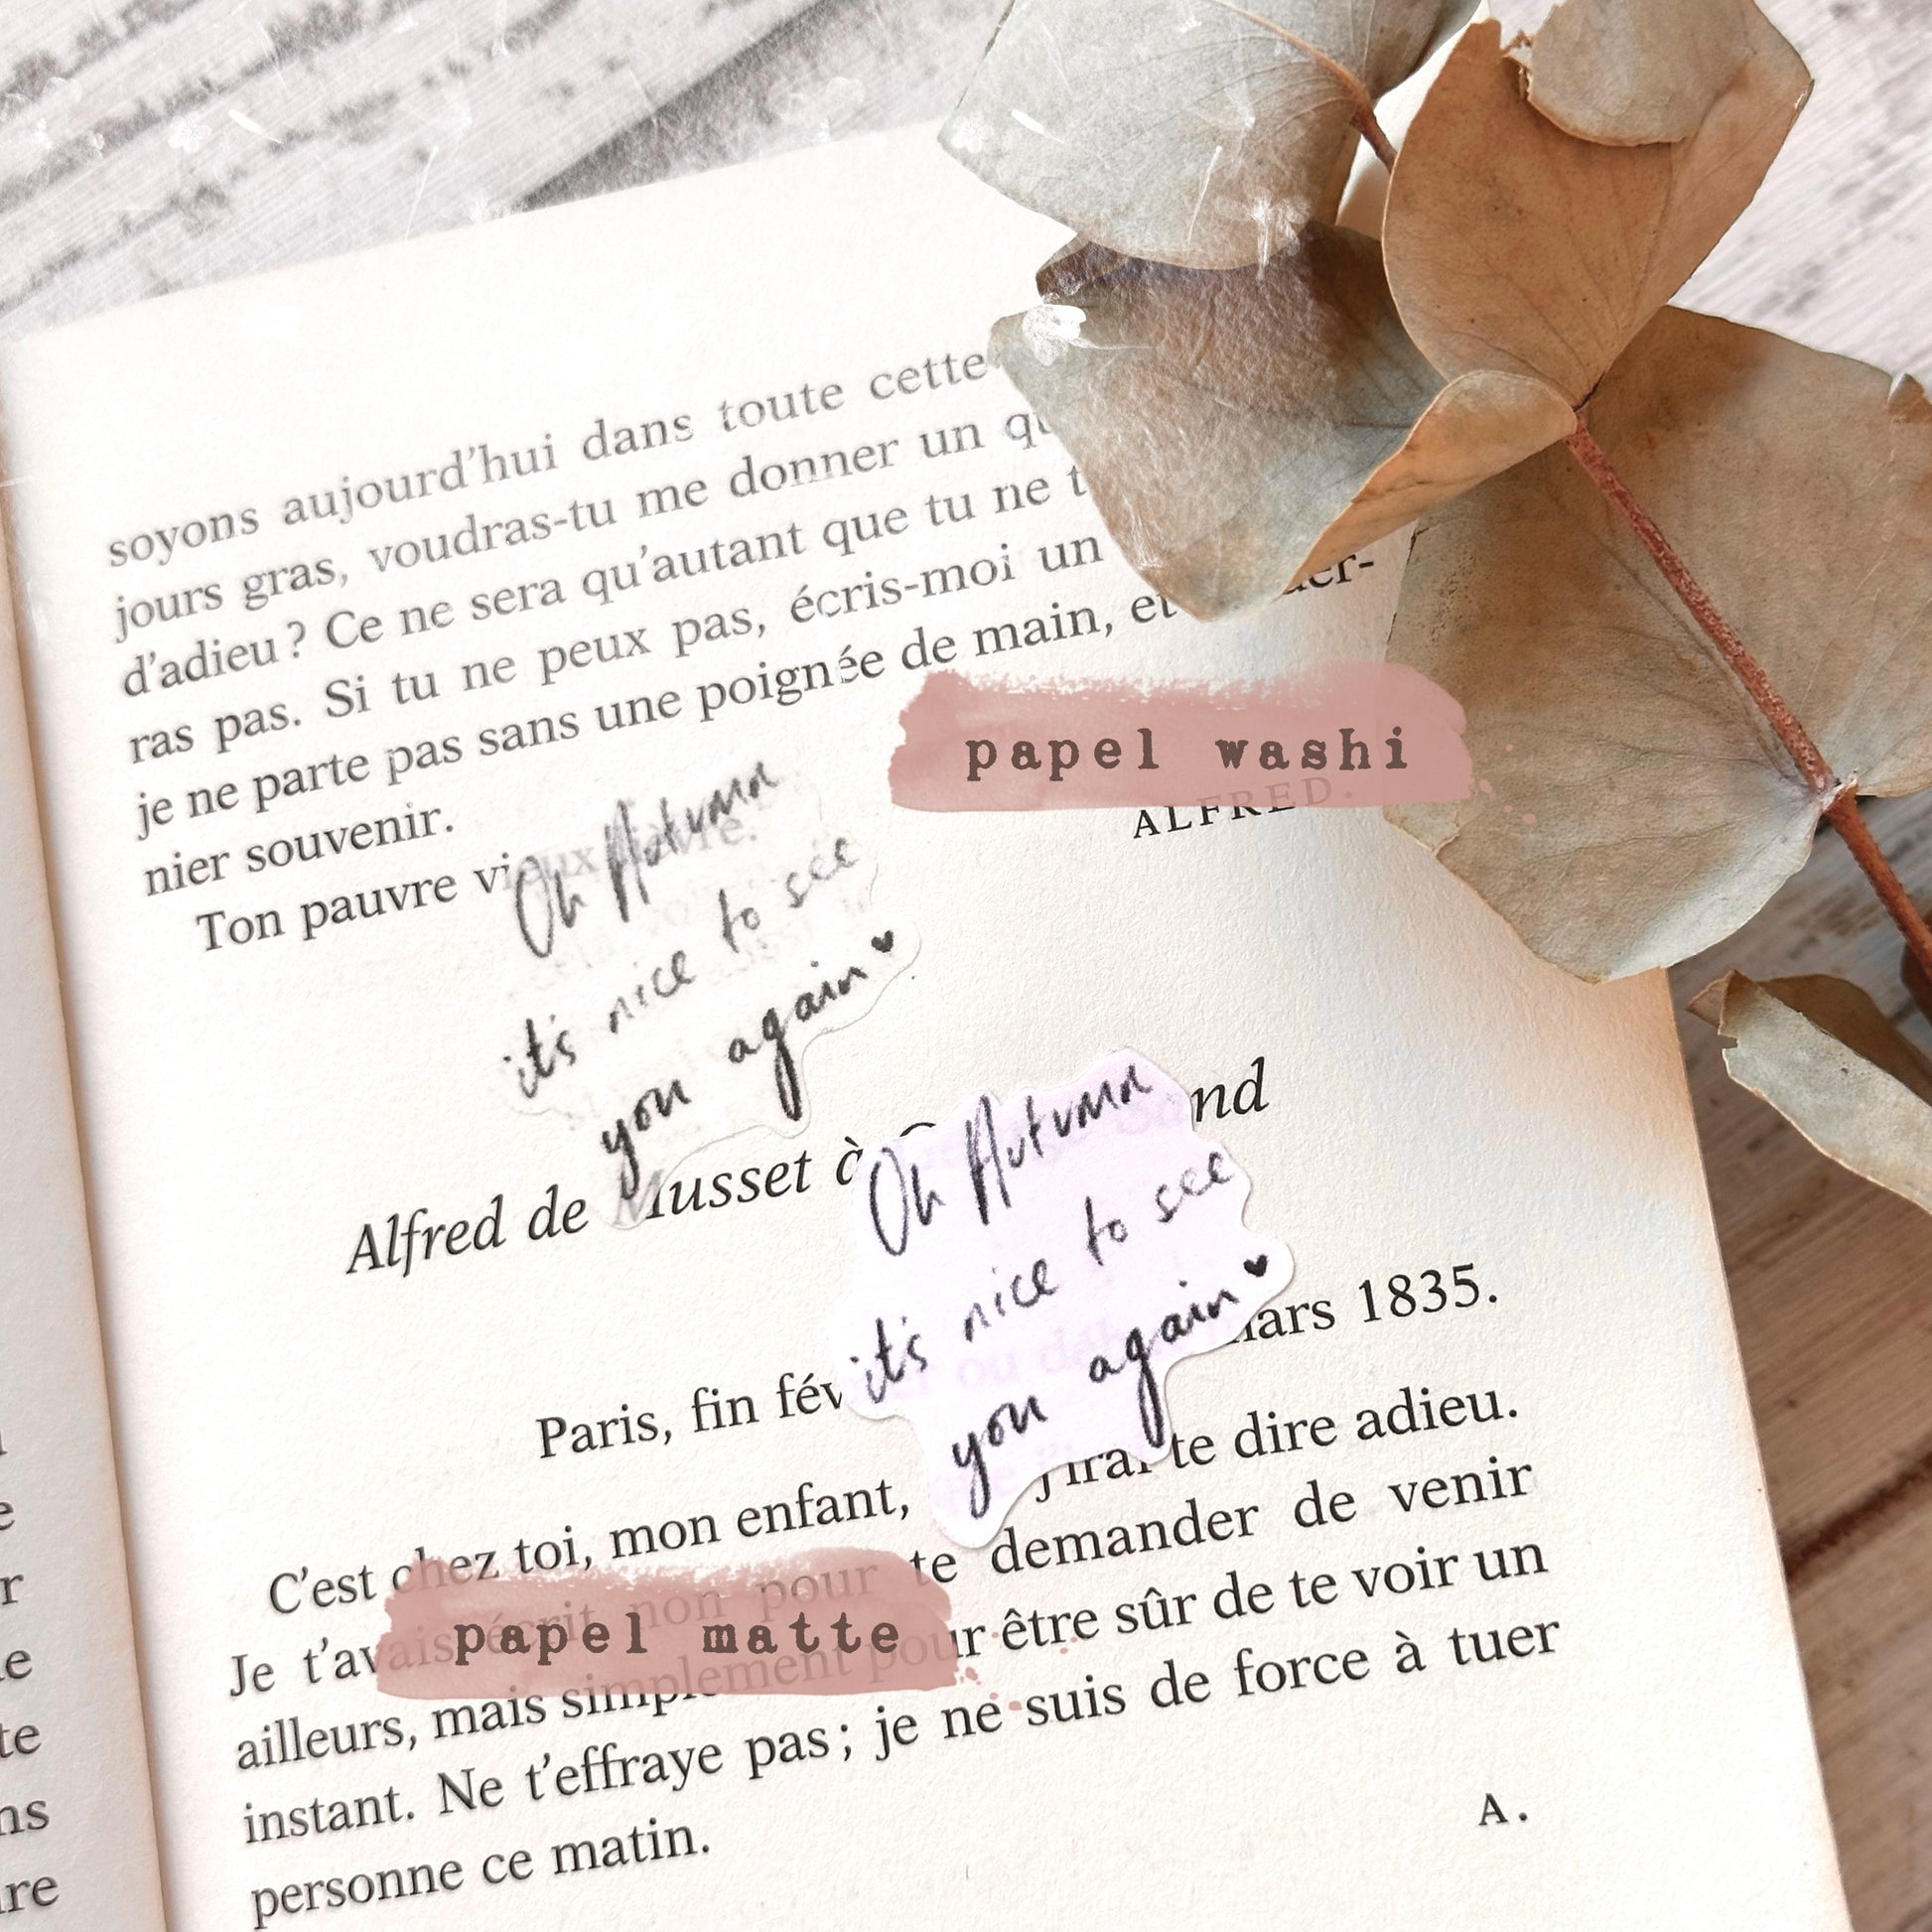 soyons aujourd'hui dans toute cette
jours gras, voudras-tu me donner un
d'adieu ? Ce ne sera qu'autant que tu ne
ras pas. Si tu ne peux pas, écris-moi un
je ne parte pas sans une poignée de main, et
nier souvenir.
Ton pauvre vieux
papel washi
ALFRED.
Oh Autumn
it's nice to see
you again
Alfred de Musset à
Oh Autumn
it's nice to see
you again
Paris, fin ou mars 1835.
C'est chez toi, mon enfant, j'irai te dire adieu.
Je t'avais écrit non pour te demander de venir
ailleurs, mais simplement pour être sûr de te voir un
instant. Ne t'effraye pas ; je ne suis de force à tuer
personne ce matin.
papel matte
A.
te
ns